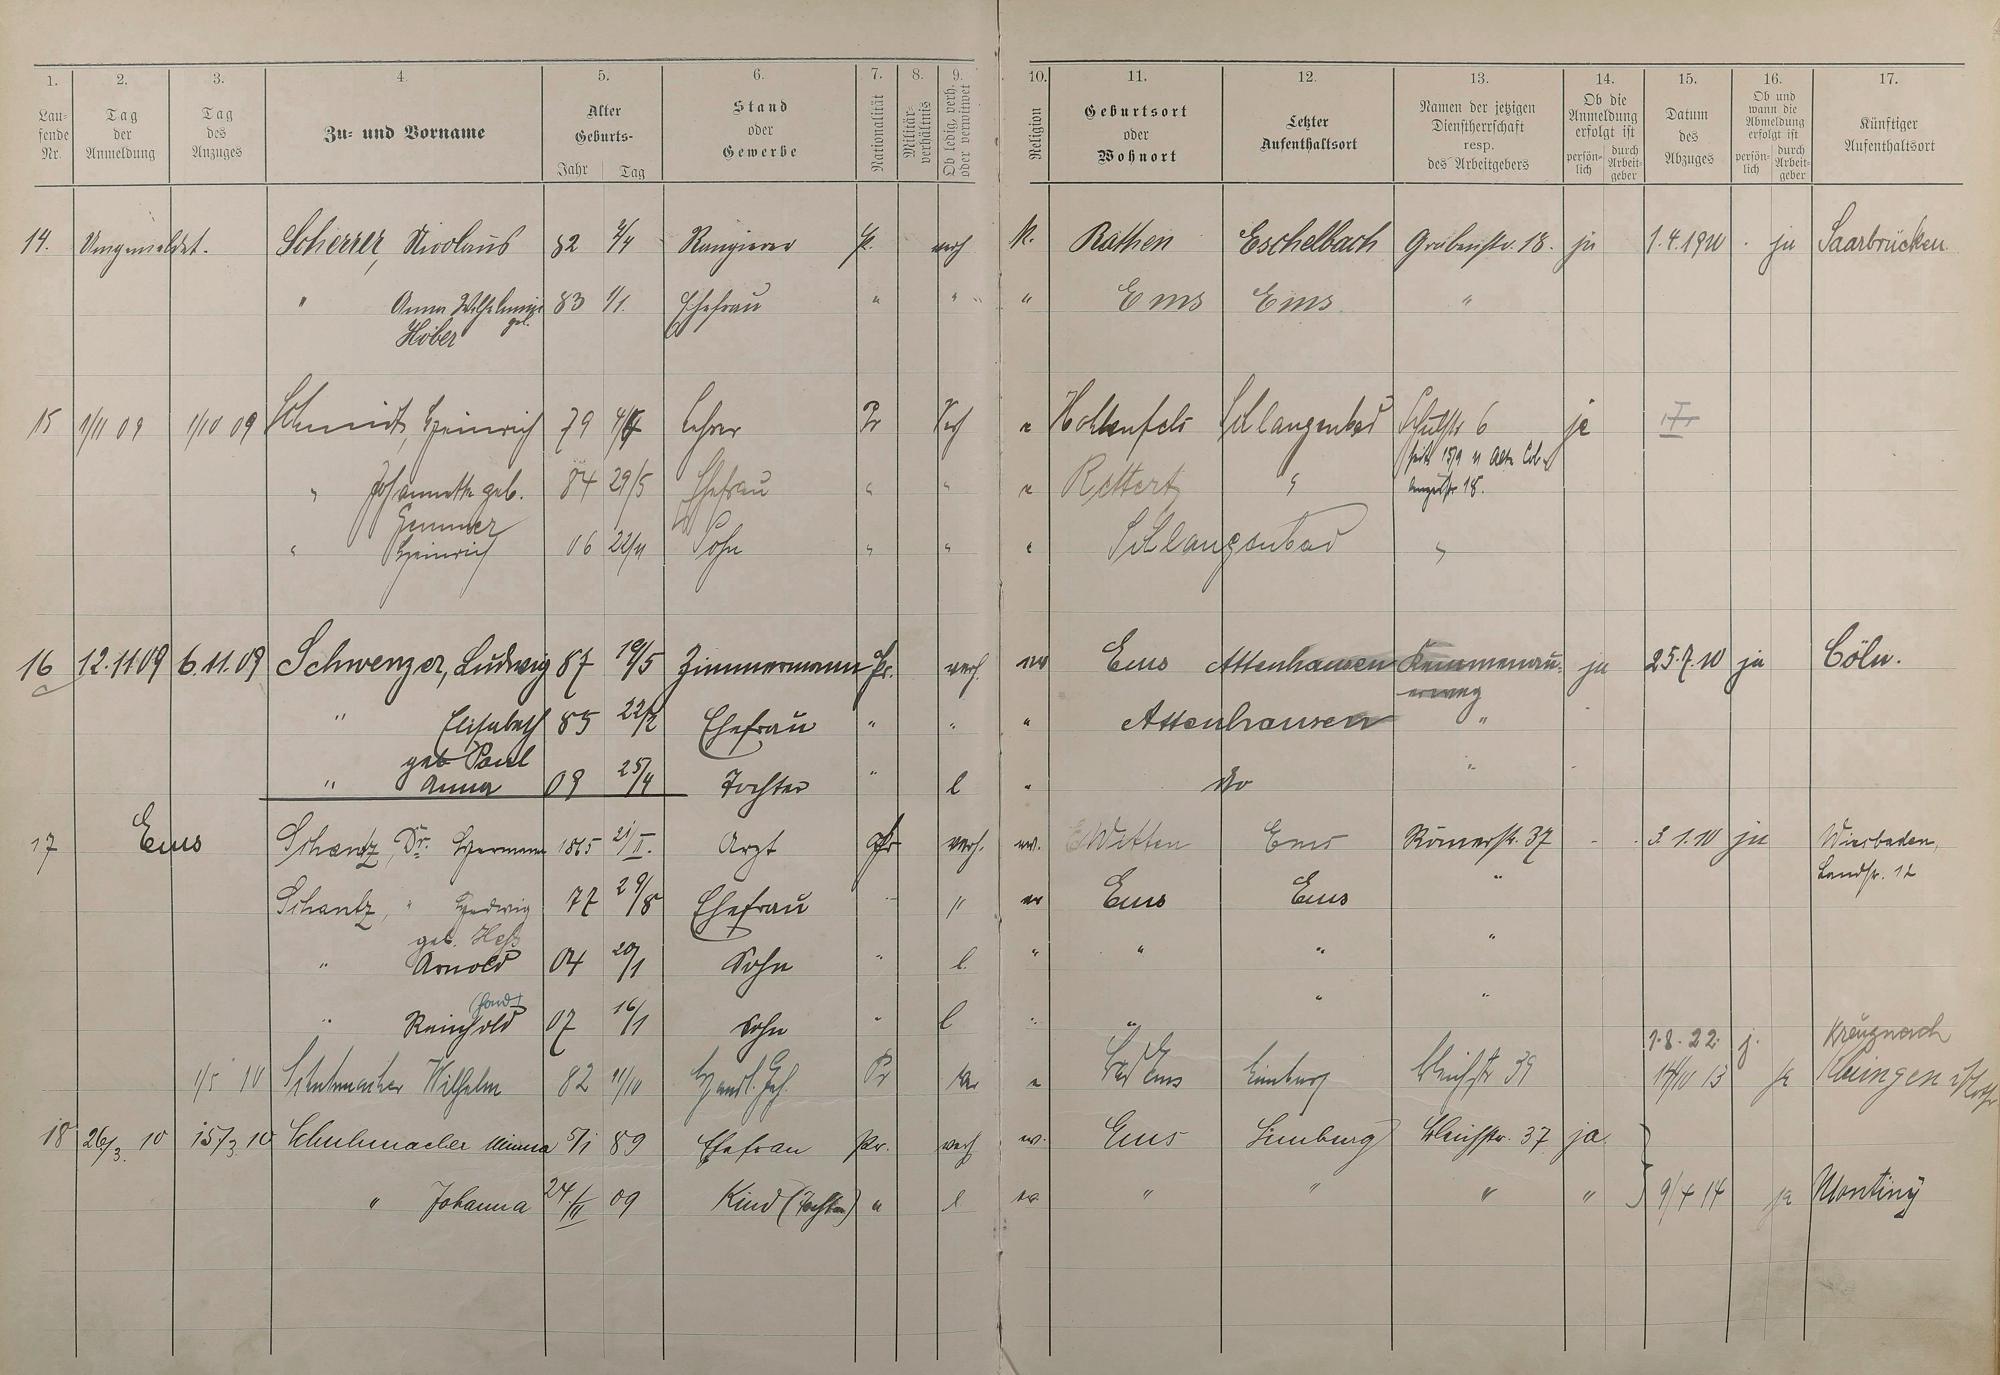 1. 2. 3. 4. 5. 6. 7. 8. 9. 10. 11. 12. 13. 14. 15. 16. 17.
Lau-
fende
Nr.
Tag
der
Anmeldung
Tag
des
Anzuges
Zu- und Vorname
Alter
Geburts-
Jahr Tag
Stand
oder
Gewerbe
Nationalität
Militär-
verhältnis
Ob ledig, verh.
oder verwitwet
Religion
Geburtsort
oder
Wohnort
Letzter
Aufenthaltsort
Namen der jetzigen
Dienstherrschaft
resp.
des Arbeitgebers
Ob die
Anmeldung
erfolgt ist
persön-
lich
durch
Arbeit-
geber
Datum
des
Abzuges
Ob und
wann die
Abmeldung
erfolgt ist
persön-
lich
durch
Arbeit-
geber
Künftiger
Aufenthaltsort
14. Umgemeldet. Scherrer, Nicolaus 82 Rangierer verh k. Rathen Eschelbach Grabenstr. 18. ja 1.4.1910 ja Saarbrücken
" Anna Wilhelmine 83 1/1. Ehefrau " " " Ems Ems "
geb.
Höber
15 1/11 09 1/10 09 Schmidt, Heinrich 79 Lehrer Pr Verh Hohlenfels Schlangenbad Schulstr 6 ja
" Johannette geb. 84 29/5 Ehefrau " " Rettert "
Gemmer
" Heinrich 06 22/11 Sohn " " " Schlangenbad "
16 12.11 09 6.11.09 Schwenzer, Ludwig 87 19/5 Zimmermann Pr. verh. ev Ems Attenhausen Kemmenau- ja 25.7.10 ja Cöln.
erweg
" Elisabeth 85 22/2 Ehefrau " " " Attenhausen "
geb Paul
" Anna 09 25/4 Tochter " l " do "
17 Ems Schantz, Dr. Hermann 1865 21/II. Arzt Pr verh. ev. Witten Ems Römerstr. 37 3.1.10 ja Wiesbaden,
Landstr. 12
Schantz, " Hedwig 77 29/8 Ehefrau " ev Ems Ems "
geb. Heß
" Arnold 04 20/1 Sohn " l. " " " "
" Reinhold 07 16/1 Sohn " l " " " "
1.8.22 j. Kreuznach
1/5 10 Schuhmacher Wilhelm 82 11/10 Handl. Geh. Pr Bad Ems Limburg Bleichstr 39 13 ja
18 26/3. 10 15/3 10 Schuhmacher Minna 5/1 89 Ehefrau Pr. verh ev. Ems Limburg Bleichstr. 37 ja
" Johanna 24./II 09 Kind (Tochter) " l ev. " " " " 9/4 14 ja Montiny